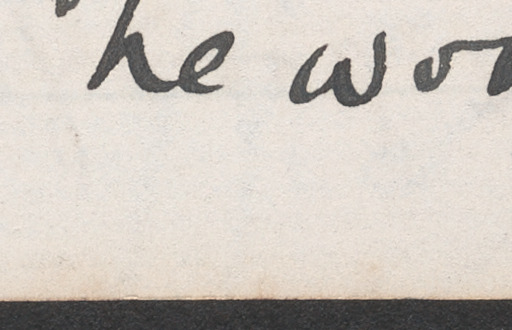 he wor